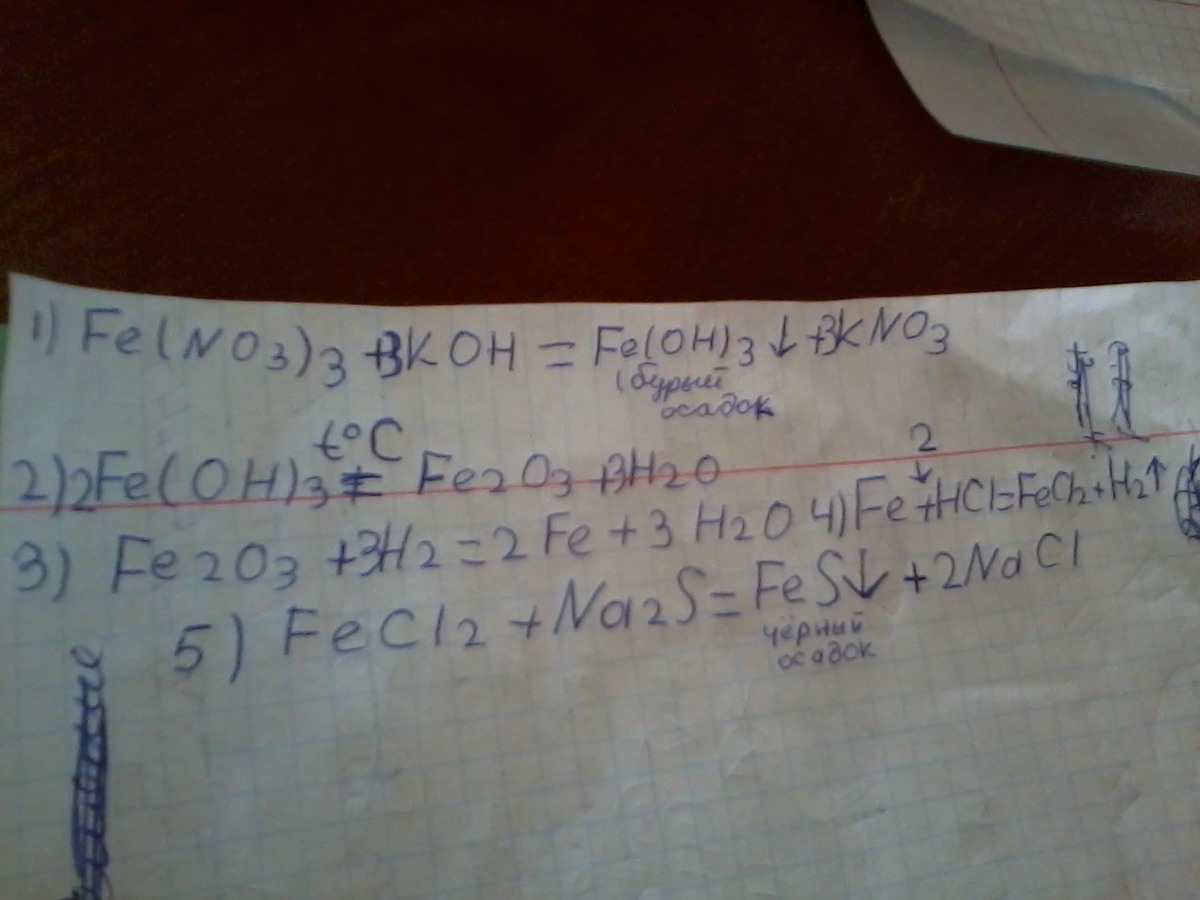 1) Fe(NO3)3 +3KOH = Fe(OH)3↓ +3KNO3
(бурый
осадок
t°C
2) 2Fe(OH)3 = Fe2O3 +3H2O
2
↓
3) Fe2O3 +3H2 = 2Fe + 3H2O 4) Fe +HCl=FeCl2+H2↑
5) FeCl2 +Na2S = FeS↓ +2NaCl
чёрный
осадок